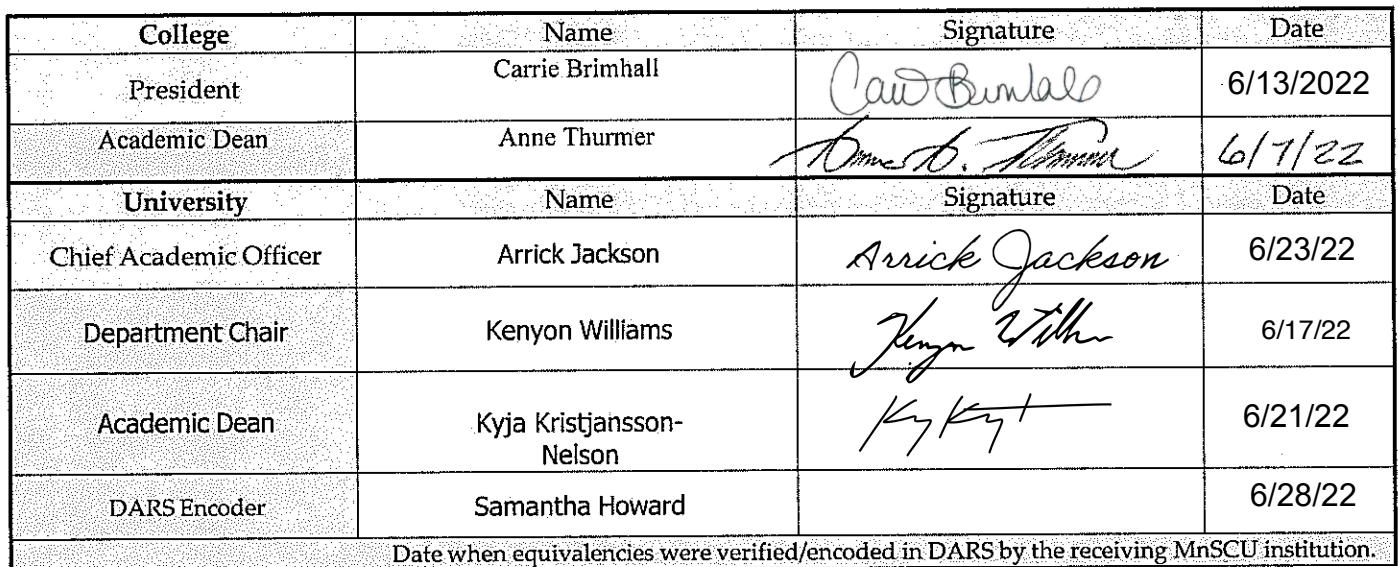 College Name Signature Date
President Carrie Brimhall Carrie Brimhall 6/13/2022
Academic Dean Anne Thurmer Anne D. Thurmer 6/7/22
University Name Signature Date
Chief Academic Officer Arrick Jackson Arrick Jackson 6/23/22
Department Chair Kenyon Williams 6/17/22
Academic Dean Kyja Kristjansson-
Nelson 6/21/22
DARS Encoder Samantha Howard 6/28/22
Date when equivalencies were verified/encoded in DARS by the receiving MnSCU institution.